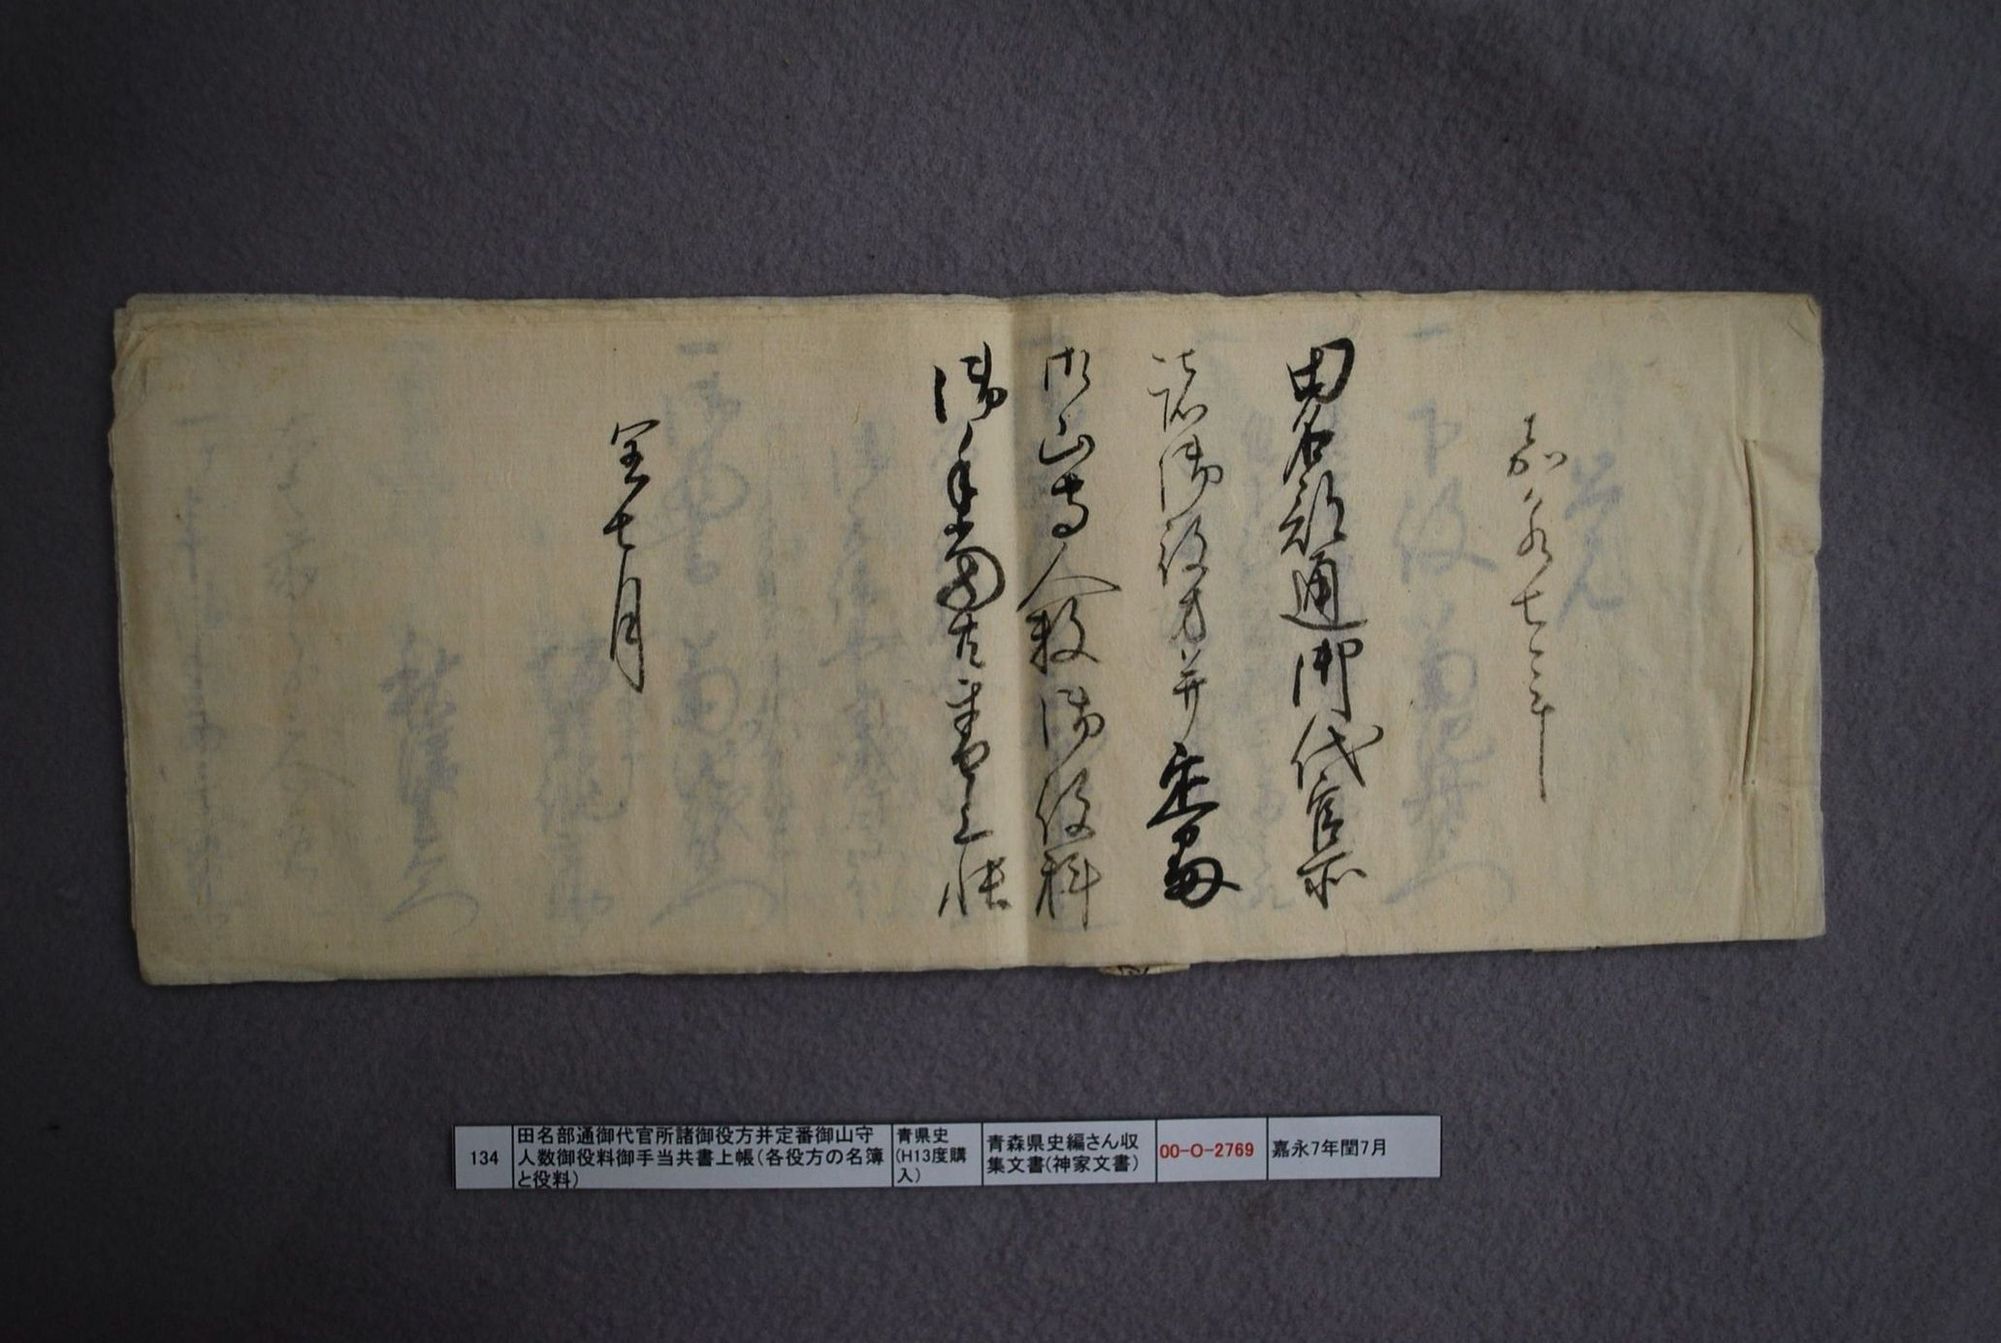 嘉永七年
田名部通御代官所
諸御役方并定番
御山守人数御役料
御手当共書上帳
閏七月
134
田名部通御代官所諸御役方并定番御山守
人数御役料御手当共書上帳(各役方の名簿
と役料)
青県史
(H13度購
入)
青森県史編さん収
集文書(神家文書)
00-O-2769
嘉永7年閏7月